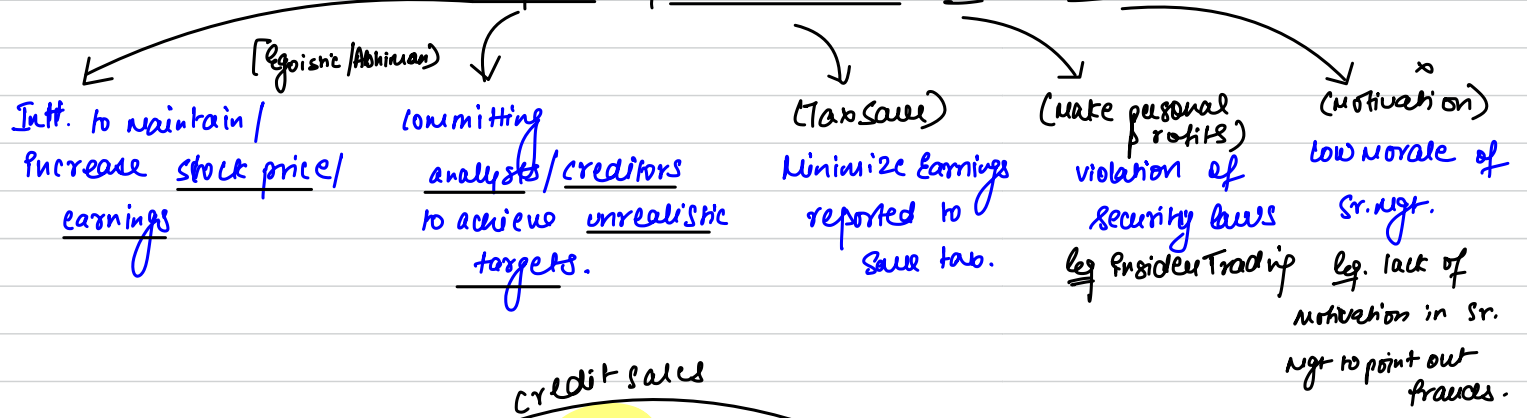 [Egoistic/Abhiman)
Intt. to maintain/
increase stock price/
earnings
committing
analysts/creditors
to achieve unrealistic
targets.
(Tax save)
Minimize Earnings
reported to
save tax.
(Make personal
profits)
violation of
security laws
eg Insider Trading
(Motivation)
Low Morale of
Sr. Mgt.
eg. lack of
motivation in Sr.
Mgt to point out
frauds.
credit sales